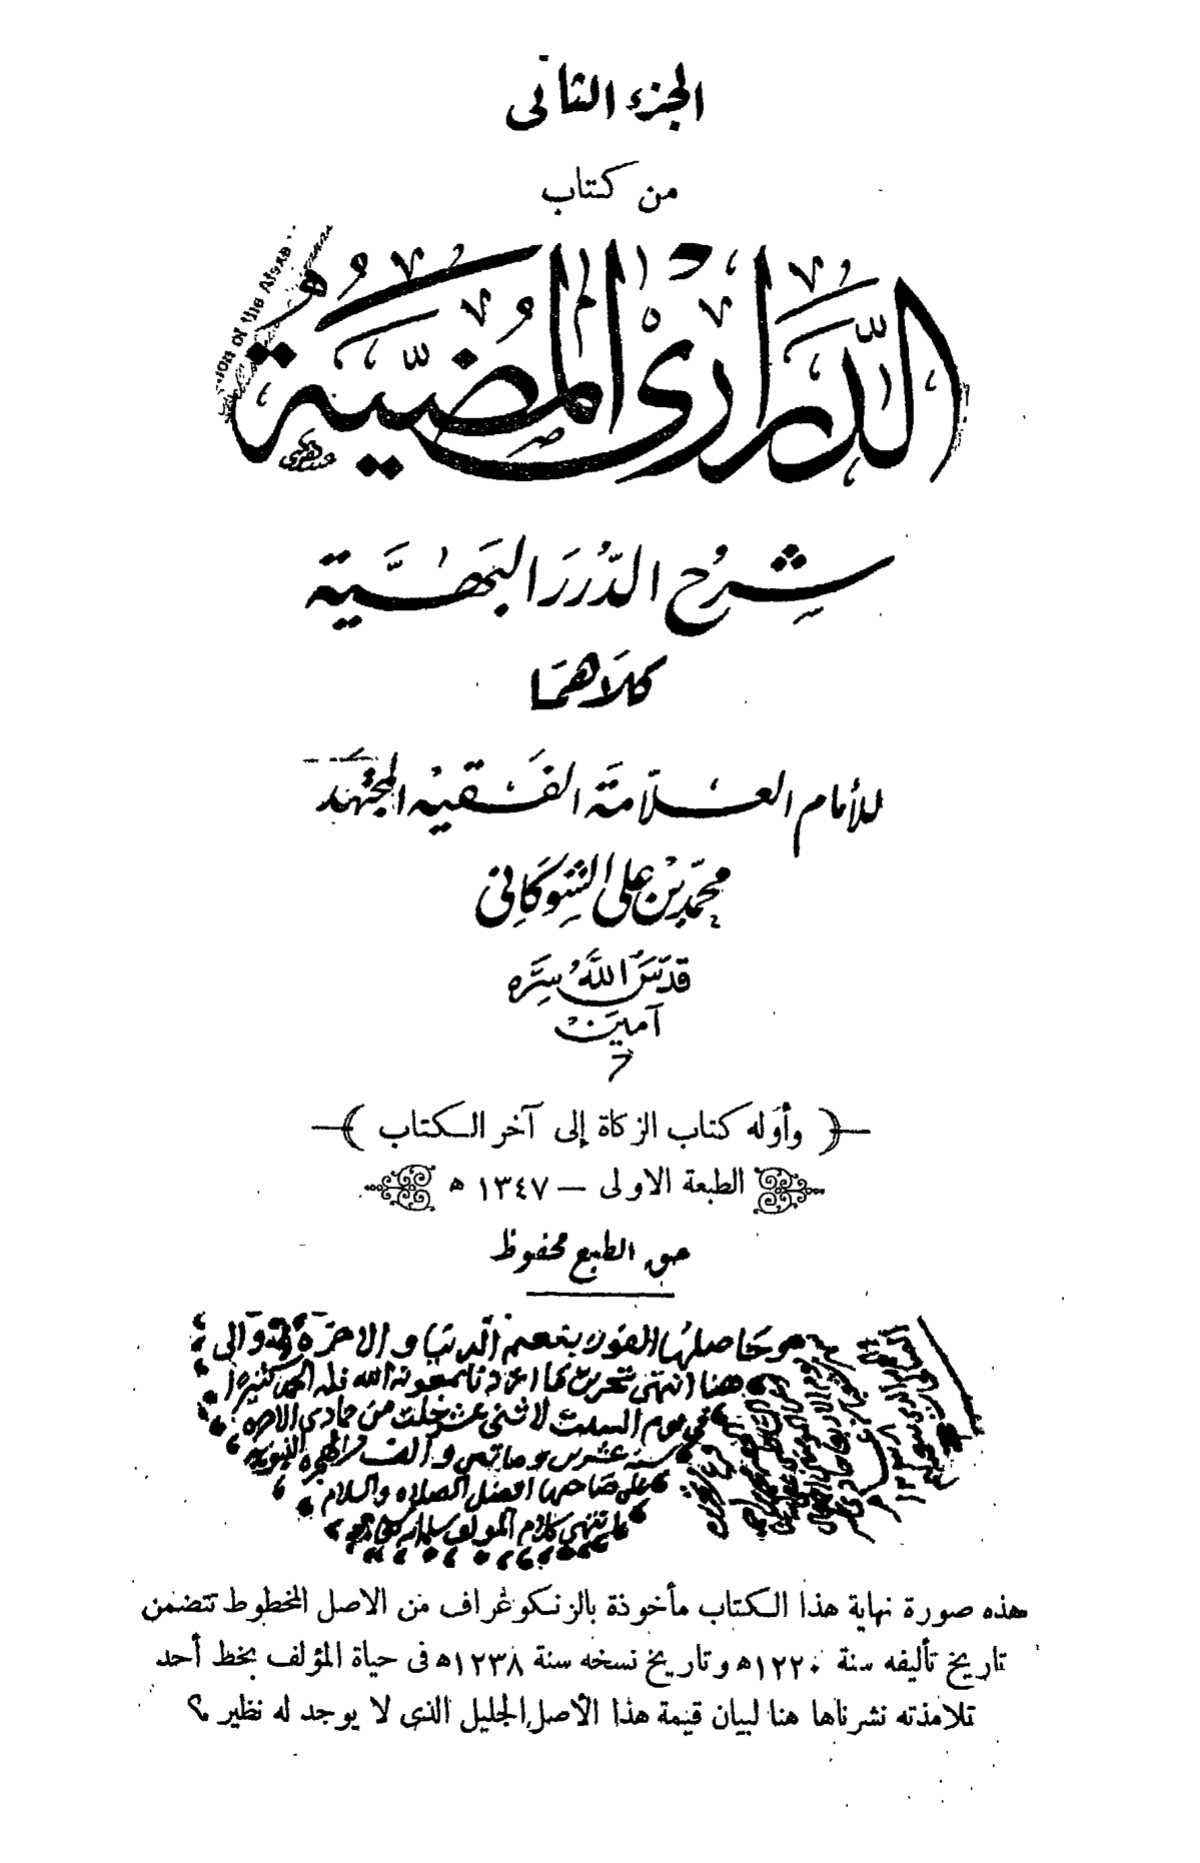 الجزء الثانى
من كتاب
الدَّرَارِى المُضِيَّة
شَرح الدُّرَرَ البَهَيَّة
كلَاهمَا
للأمام العلّامَة الفَقيه المجتهَد
محمّد بن على الشوكَانِى
قدّسَ اللَّهُ سِرَّه
آمين
وأوله كتاب الزكاة إلى آخر الكتاب
الطبعة الاولى — ١٣٤٧ ه
حق الطبع محفوظ
حاصلها الفوز بنعيم الدنيا و الاخرة
هنا انتهى تحرير ما اردنا بمعونة الله فله الحمد كثيرا
في يوم السبت لاثنى عشر خلت من جمادى الاخرة
سنة عشرين وماتين والف من الهجرة النبوية
على صاحبها افضل الصلاة والسلام
انتهى كلام المؤلف
هذه صورة نهاية هذا الكتاب مأخوذة بالزنكوغراف من الاصل المخطوط تتضمن
تاريخ تأليفه سنة ١٢٢٠ه وتاريخ نسخه سنة ١٢٣٨ه فى حياة المؤلف بخط أحد
تلامذته نشرناها هنا لبيان قيمة هذا الأصل الجليل الذى لا يوجد له نظير ؟
of the